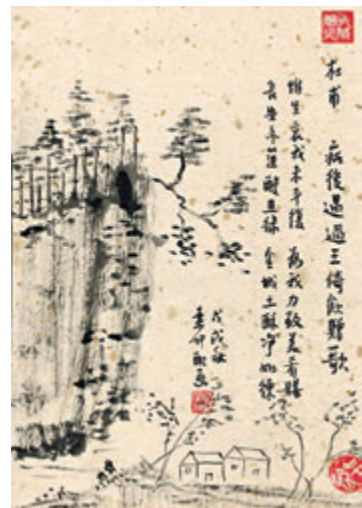 杜甫 病後遇過王倚飲贈歌
惟生哀我未平復 為我力致美肴膳
長安冬菹酸且綠 金城土酥淨如練
戊戌秋